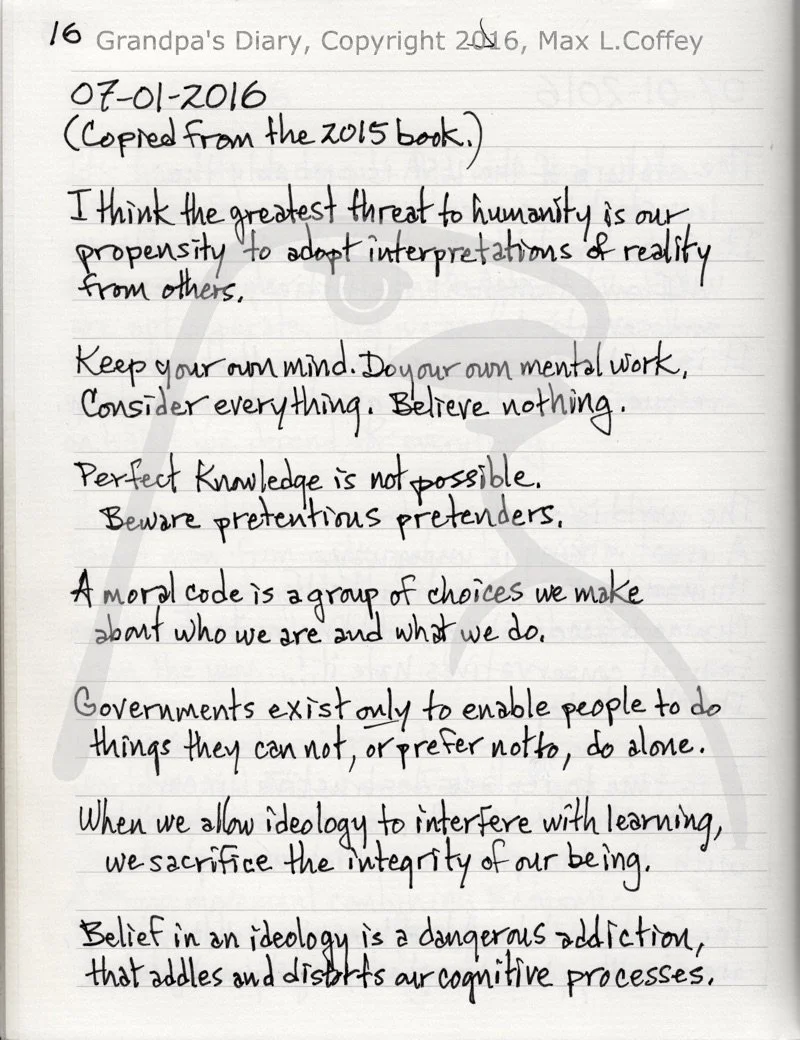 16 Grandpa's Diary, Copyright 2016, Max L.Coffey
07-01-2016
(Copied from the 2015 book.)
I think the greatest threat to humanity is our
propensity to adopt interpretations of reality
from others.
Keep your own mind. Do your own mental work,
Consider everything. Believe nothing.
Perfect Knowledge is not possible.
Beware pretentious pretenders.
A moral code is a group of choices we make
about who we are and what we do.
Governments exist only to enable people to do
things they can not, or prefer not to, do alone.
When we allow ideology to interfere with learning,
we sacrifice the integrity of our being.
Belief in an ideology is a dangerous addiction,
that addles and distorts our cognitive processes.